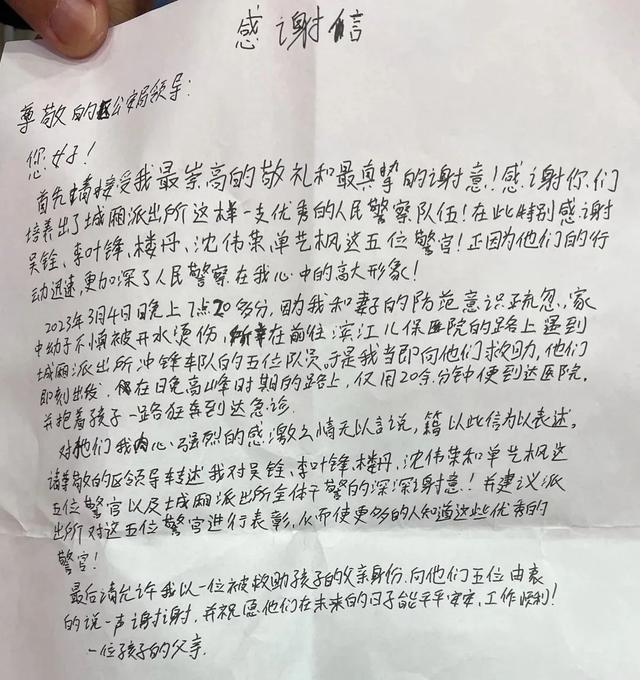 感谢信
尊敬的区公安局领导:
您好!
首先请接受我最崇高的敬礼和最真挚的谢意!感谢你们
培养出了城厢派出所这样一支优秀的人民警察队伍!在此特别感谢
吴铨、李叶锋、楼丹、沈伟荣、单艺枫这五位警官!正因为他们的行
动迅速,更加深了人民警察在我心中的高大形象!
2023年3月4日晚上7点20多分,因我和妻的防范意识疏忽,家
中幼子不慎被开水烫伤,所幸在前往滨江儿保医院的路上遇到
城厢派出所冲锋车队的五位队员,于是我当即向他们求助,他们
即刻出发,在晚高峰时期的路上,仅用20余分钟便到达医院,
并抱着孩子一路狂奔到达急诊.
对他们我内心强烈的感激之情无以言说,籍以此信为以表述,
请尊敬的区领导转述我对吴铨、李叶锋、楼丹、沈伟荣和单艺枫这
五位警官以及城厢派出所全体干警的深深谢意!并建议派
出所对这五位警官进行表彰,从而使更多的人知道这些优秀的
警官!
最后请允许我以一位被救助孩子的父亲身份,向他们五位由衷
的说一声谢谢,并祝愿他们在未来的日子能平平安安、工作顺利!
一位孩子的父亲.